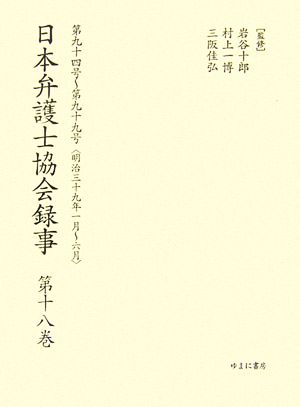 ［監修］
岩谷十郎
村上一博
三阪佳弘
第九十四号〜第九十九号〈明治三十九年一月〜六月〉
日本弁護士協会録事 第十八巻
ゆまに書房